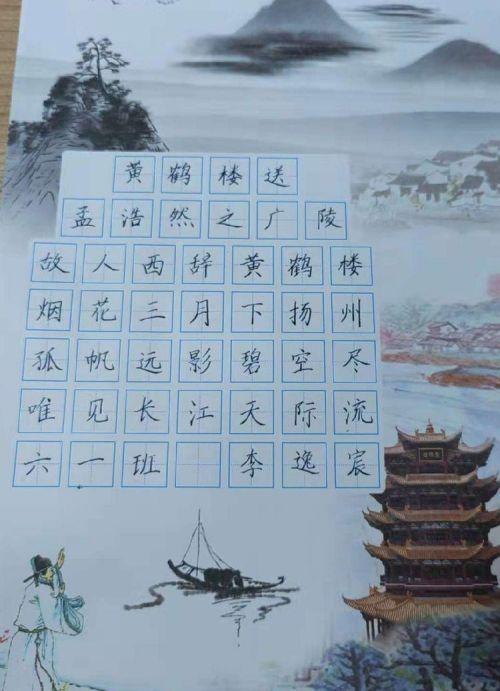 黄鹤楼送
孟浩然之广陵
故人西辞黄鹤楼
烟花三月下扬州
孤帆远影碧空尽
唯见长江天际流
六一班 李逸宸